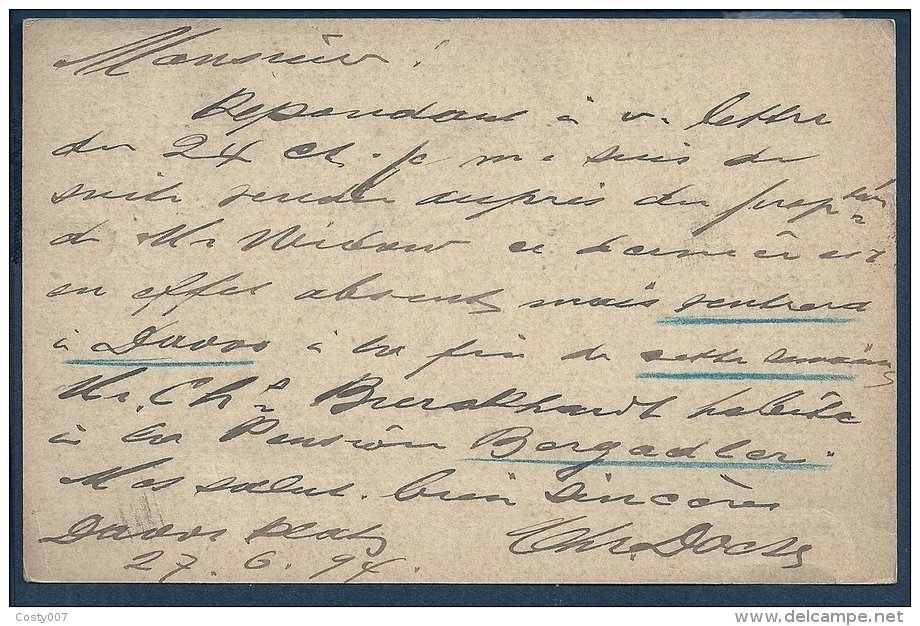 Monsieur !
Repondant à v. lettre
du 24 ct. je me suis de
suite rendu auprès du
de Mr ce dernier est
en effet absent mais rentrera
à Davos à la fin de cette semaine
Mr. Chs Burckhardt habite
à la Pension Bergadler.
Mes salut. bien sincères
Davos Platz
27. 6. 94.
Costy007
www.delcampe.net